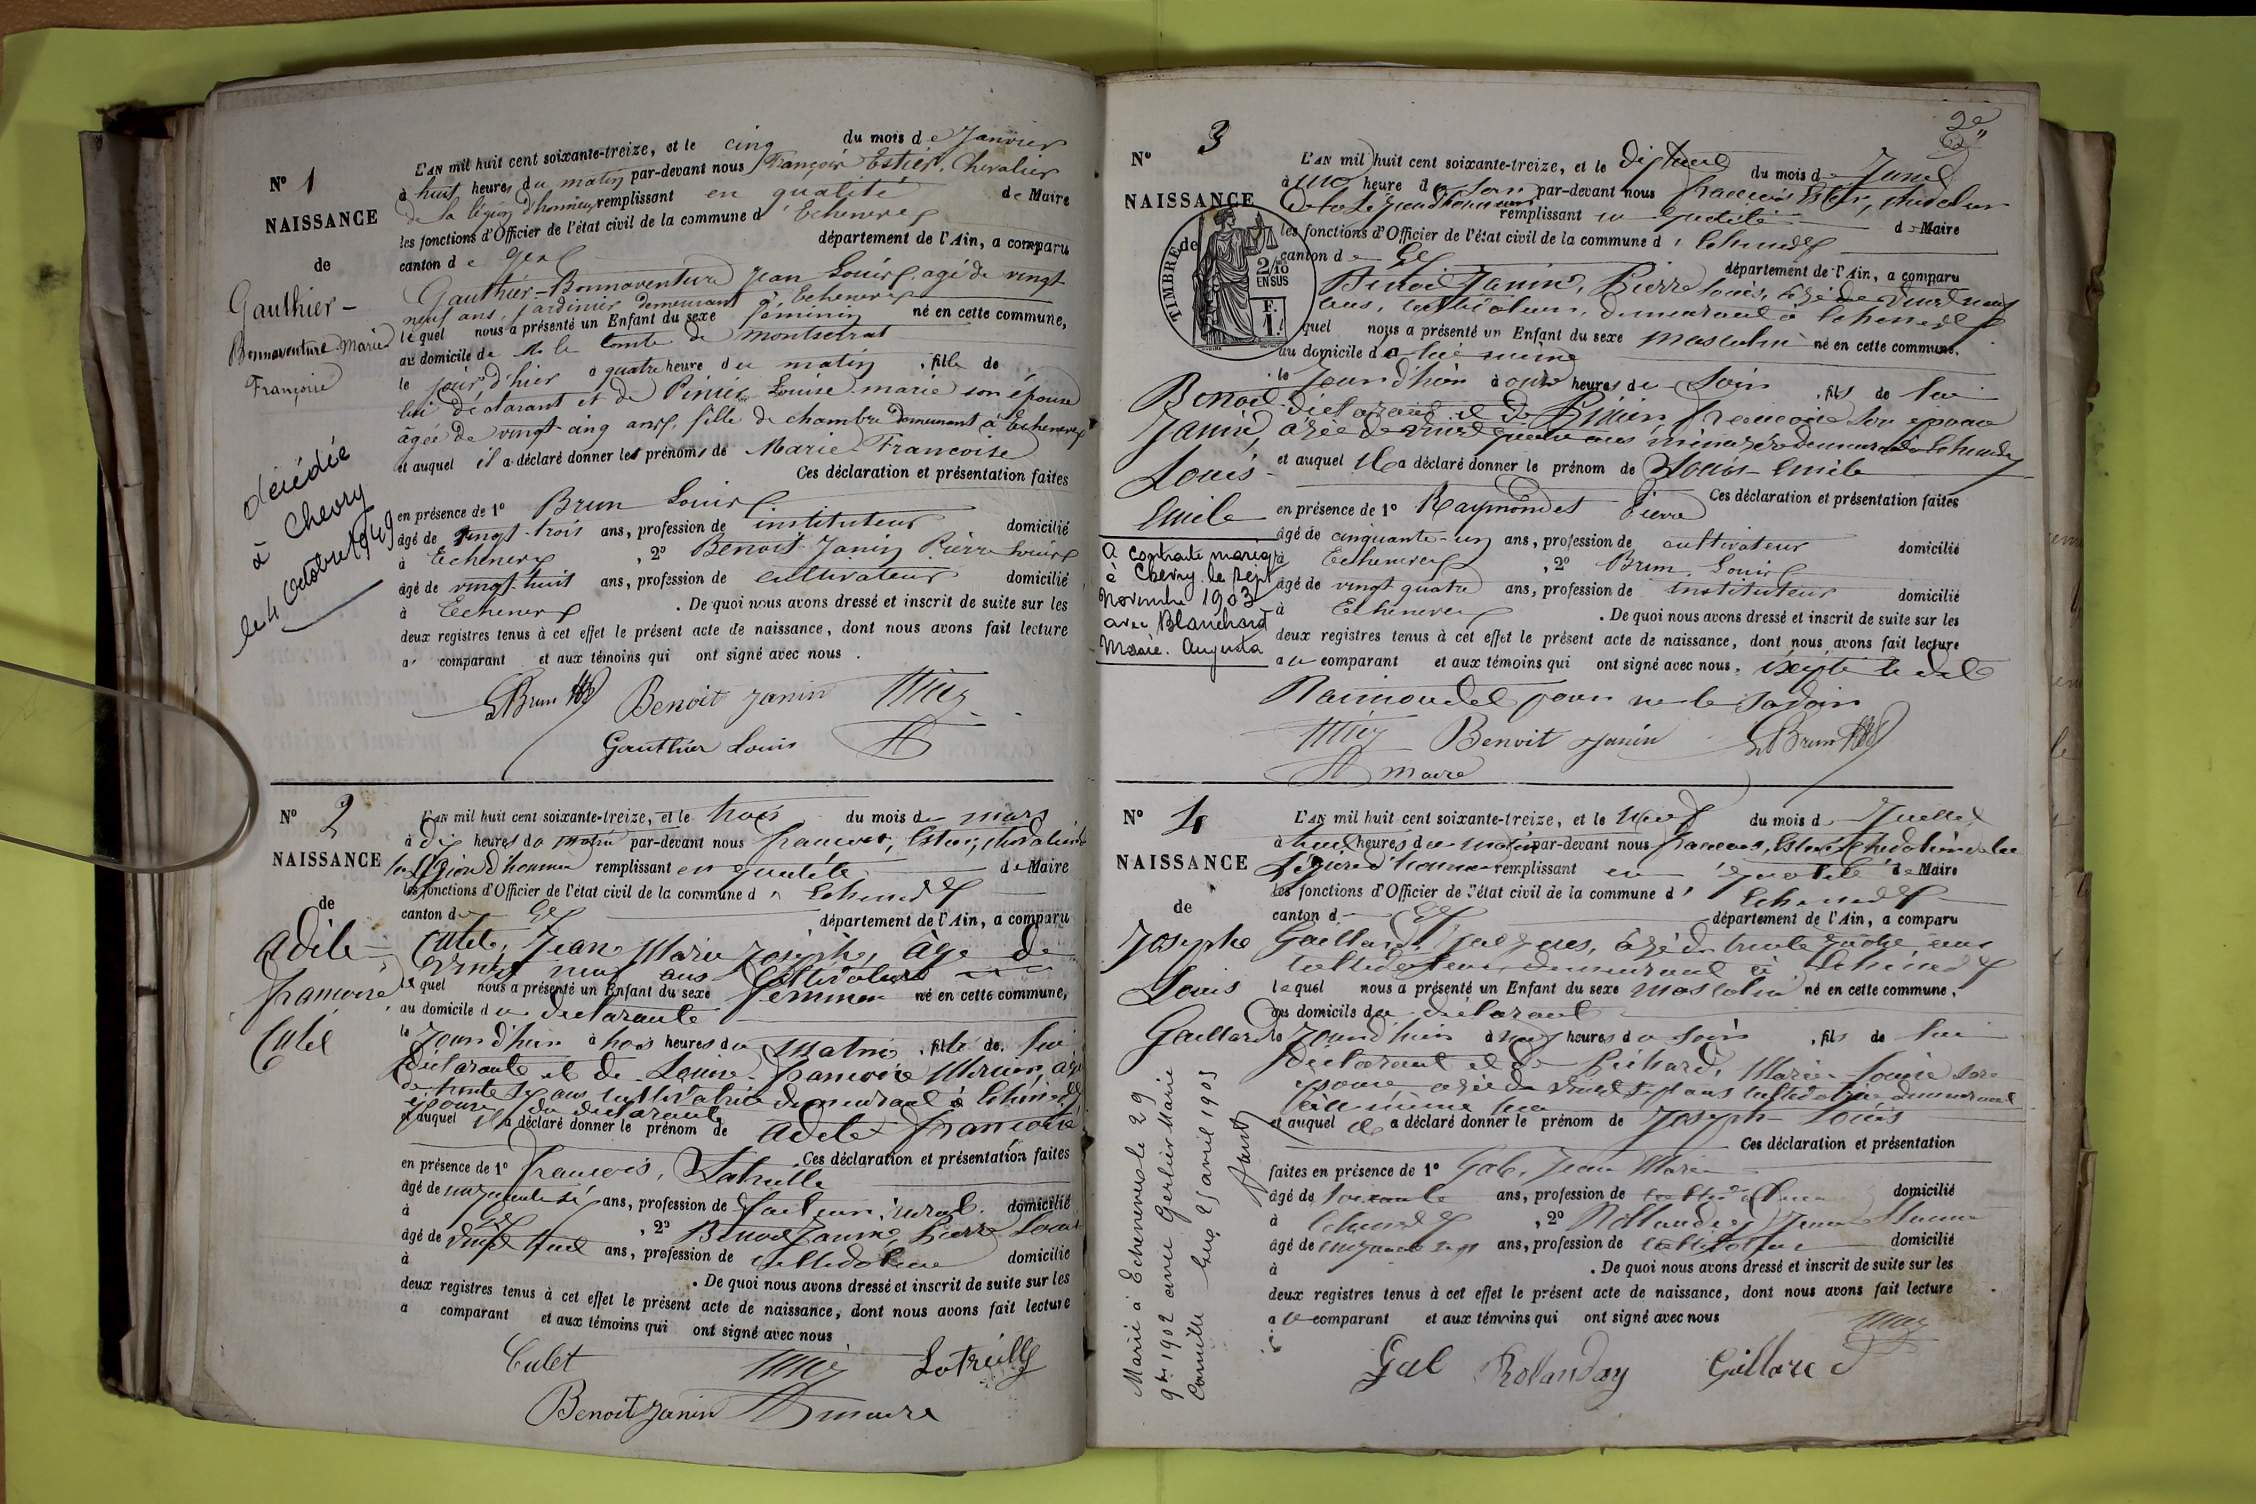 N° 1
NAISSANCE
de
Gauthier-
Bonnaventure Marie
Françoise
décédée
à Chevry
le 4 Octobre 1949
L'AN mil huit cent soixante-treize, et le cinq du mois de Janvier
à huit heures du matin par-devant nous François Estier, Chevalier
de la légion d'honneur remplissant en qualité de Maire
les fonctions d'Officier de l'état civil de la commune d'Echenevex
canton de Gex département de l'Ain, a comparu
Gauthier-Bonnaventure Jean Louis, agé de vingt
neuf ans, jardinier demeurant à Echenevex
lequel nous a présenté un Enfant du sexe féminin né en cette commune,
au domicile de M. le Comte de Montsetrat
le jour d'hier à quatre heure du matin, fille de
lui déclarant et de Pinier Louise Marie son épouse
âgée de vingt-cinq ans, fille de chambre demeurant à Echenevex
et auquel il a déclaré donner les prénoms de Marie Françoise
Ces déclaration et présentation faites
en présence de 1° Brun Louis
âgé de vingt-trois ans, profession de instituteur domicilié
à Echenevex, 2° Benoit-Janin Pierre Louis
âgé de vingt-huit ans, profession de cultivateur domicilié
à Echenevex. De quoi nous avons dressé et inscrit de suite sur les
deux registres tenus à cet effet le présent acte de naissance, dont nous avons fait lecture
a comparant et aux témoins qui ont signé avec nous.
LBrun Benoit Janin
Gauthier Louis
N° 2
NAISSANCE
de
Adèle
françoise
Culet
L'AN mil huit cent soixante-treize, et le trois du mois de mars
à dix heures du matin par-devant nous françois, Estier, chevalier de
la légion d'honneur remplissant en qualité de Maire
les fonctions d'Officier de l'état civil de la commune d' Echenevex
canton de Gex département de l'Ain, a comparu
Culet, Jean Marie Joseph, âgé de
vingt neuf ans Cultivateur
lequel nous a présenté un Enfant du sexe féminin né en cette commune,
au domicile du déclarant
le Jourd'hui à trois heures du matin, fille de lui
déclarant et de Louise françoise Mercier, agé
de trente ans cultivatrice demeurant à Echenevex
épouse du déclarant
et auquel il a déclaré donner le prénom de Adèle françoise
Ces déclaration et présentation faites
en présence de 1° françois, Latreille
âgé de ans, profession de facteur rural domicilié
à Gex, 2° Benoit Janin, Pierre Louis
âgé de vingt huit ans, profession de cultivateur domicilié
à . De quoi nous avons dressé et inscrit de suite sur les
deux registres tenus à cet effet le présent acte de naissance, dont nous avons fait lecture
a comparant et aux témoins qui ont signé avec nous
Culet Latreille
Benoit Janin maire
2e
N° 3
NAISSANCE
de
TIMBRE
2/10
EN SUS
F.
1.
Benoit
Janin,
Louis
Emile
a contracté mariage
à Chevry le sept
Novembre 1903
avec Blanchard
Marie. Augusta
L'AN mil huit cent soixante-treize, et le dix huit du mois de Juin
à une heure du soir par-devant nous françois Estier, chevalier
de la Légion d'honneur remplissant en qualité de Maire
les fonctions d'Officier de l'état civil de la commune d' Echenevex
canton de Gex département de l'Ain, a comparu
Benoit Janin, Pierre Louis, âgé de vingt neuf
ans, cultivateur, demeurant à Echenevex
lequel nous a présenté un Enfant du sexe masculin né en cette commune,
au domicile de lui même
le Jourd'hui à onze heures de Soir, fils de lui
déclarant et de Pinier, françoise son épouse
agée de vingt quatre ans ménagère demeurant à Echenevex
et auquel il a déclaré donner le prénom de Louis Emile
Ces déclaration et présentation faites
en présence de 1° Raymondet Pierre
âgé de cinquante-un ans, profession de cultivateur domicilié
à Echenevex, 2° Brun, Louis
âgé de vingt quatre ans, profession de instituteur domicilié
à Echenevex. De quoi nous avons dressé et inscrit de suite sur les
deux registres tenus à cet effet le présent acte de naissance, dont nous avons fait lecture
au comparant et aux témoins qui ont signé avec nous. excepté le dit
Raimondet pour ne le savoir
Benoit Janin LBrun
maire
N° 4
NAISSANCE
de
Joseph
Louis
Gaillard
Marié à Echenevex le 29
9bre 1902 avec Gerlier Marie
Camille Gex 25 avril 1905
L'AN mil huit cent soixante-treize, et le neuf du mois de Juillet
à huit heures du matin par-devant nous françois, Estier Chevalier de la
Légion d'honneur remplissant en qualité de Maire
les fonctions d'Officier de l'état civil de la commune d' Echenevex
canton de Gex département de l'Ain, a comparu
Gaillard, Jacques, âgé de trente quatre ans
cultivateur, demeurant à Echenevex
lequel nous a présenté un Enfant du sexe masculin né en cette commune,
au domicile du déclarant
le Jourd'hui à heures du soir, fils de lui
déclarant et de Richard, Marie Louise son
épouse agée de vingt sept ans cultivatrice demeurant
et auquel il a déclaré donner le prénom de Joseph Louis
Ces déclaration et présentation
faites en présence de 1° Gal, Jean Marie
âgé de soixante ans, profession de cultivateur domicilié
à Echenevex, 2° Rollandey Jean
âgé de ans, profession de cultivateur domicilié
à . De quoi nous avons dressé et inscrit de suite sur les
deux registres tenus à cet effet le présent acte de naissance, dont nous avons fait lecture
a le comparant et aux témoins qui ont signé avec nous
Gal Rolanday Gaillard